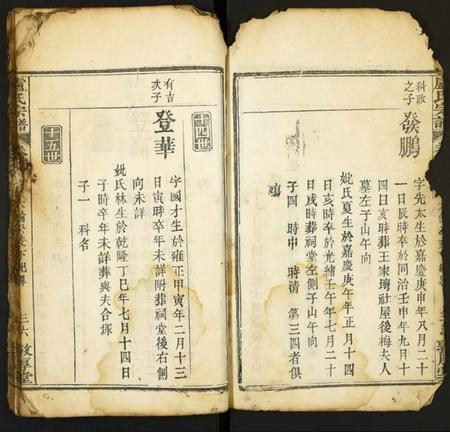 盧氏宗譜
科政
之子
發鵬
字先太生於嘉慶庚申年八月二十
一日辰時卒於同治壬申年九月十
四日亥時葬王家塆社屋後梅夫人
墓左子山午向
妣氏夏生於嘉慶庚午年正月十四
日亥時卒於光緒壬午年七月二十
日戌時葬祠堂左側子山午向
子四 時中 時清 第三四者俱
殤
十四世
有吉
次子
登華
字國才生於雍正甲寅年二月十三
日寅時卒年未詳附葬祠堂後右側
向未詳
妣氏林生於乾隆丁巳年七月十四日
子時卒年未詳葬與夫合塚
子一 科名
十五世
盧氏宗譜
三六
敦厚堂